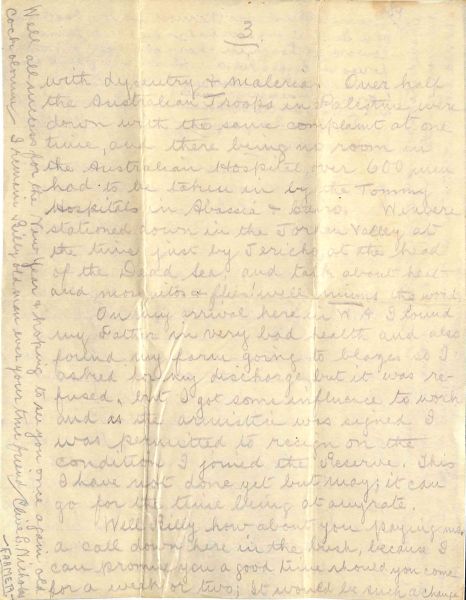 3.
with dysentry & malaria. Over half
the Australian Troops in Palestine were
down with the same complaint at one
time, and there being no room in
the Australian Hospital, over 600 men
had to be taken in by the Tommy
Hospitals in Abassia & Cairo. We were
stationed down in the Jordan Valley at
the time just by Jericho at the head
of the Dead Sea, and talk about heat
and mosquitos & flies! well mums the word.
On my arrival here in W.A. I found
my Father in very bad health and also
found my farm going to blazes so I
asked for my discharge but it was re-
fused, but I got some influence to work
and as the armistice was signed I
was permitted to resign on the
condition I joined the reserve. This
I have not done yet but may; it can
go for the time being at anyrate.
Well Billy how about you paying me
a call down here in the bush, because I
can promise you a good time should you come
for a week or two; It would be such a change
Well all success for the New Year & hoping to see you once again old
Cock alorum I remain Billy old man ever your true friend Clive B. Nicholas
-FARMER-